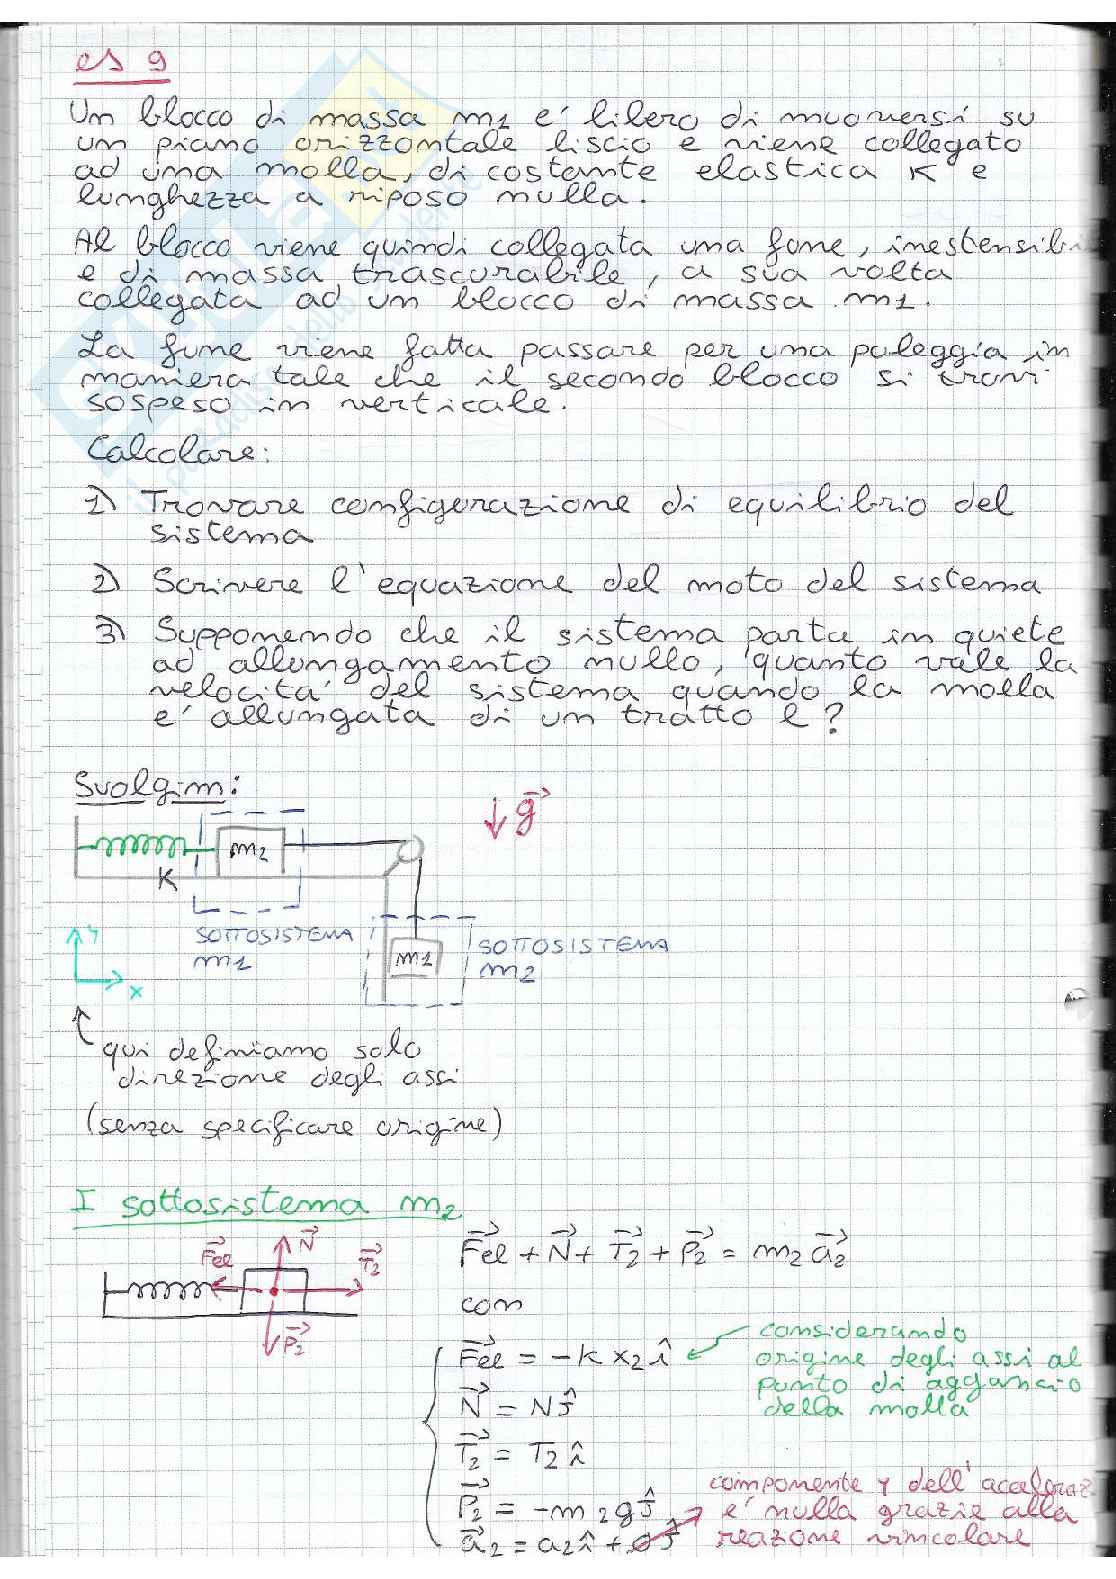 es 9
Un blocco di massa m2 e' libero di muoversi su
un piano orizzontale liscio e viene collegato
ad una molla, di costante elastica K e
lunghezza a riposo nulla.
Al blocco viene quindi collegata una fune, inestensibi
e di massa trascurabile, a sua volta
collegata ad un blocco di massa m1.
La fune viene fatta passare per una puleggia in
maniera tale che il secondo blocco si trovi
sospeso in verticale.
Calcolare:
1) Trovare configurazione di equilibrio del
sistema
2) Scrivere l'equazione del moto del sistema
3) Supponendo che il sistema parta in quiete
ad allungamento nullo, quanto vale la
velocita' del sistema quando la molla
e' allungata di un tratto l?
Svolgim:
↓ g⃗
m2
K
SOTTOSISTEMA
m2
m1
SOTTOSISTEMA
m2
y
x
qui definiamo solo
direzione degli assi
(senza specificare origine)
I sottosistema m2
F⃗el N⃗ T⃗2
P⃗2
F⃗el + N⃗ + T⃗2 + P⃗2 = m2 a⃗2
con
F⃗el = -k x2 î
considerando
origine degli assi al
punto di aggancio
della molla
N⃗ = N ĵ
T⃗2 = T2 î
P⃗2 = -m2 g ĵ
a⃗2 = a2 î + 0 ĵ
componente y dell'acceleraz
e' nulla grazie alla
reazione vincolare